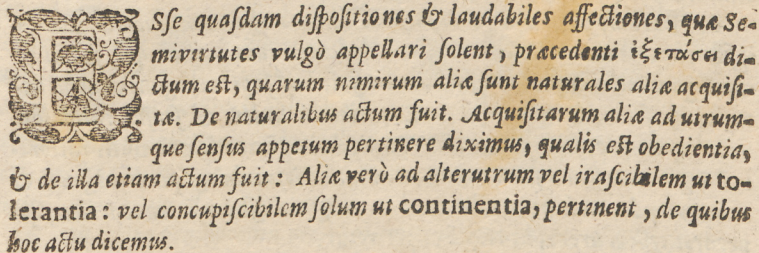 ESse quasdam dispositiones & laudabiles affectiones, quæ Se-
mivirtutes vulgò appellari solent, præcedenti ἐξετάσει di-
ctum est, quarum nimirum aliæ sunt naturales aliæ acquisi-
tæ. De naturalibus actum fuit. Acquisitarum aliæ ad utrum-
que sensus appetum pertinere diximus, qualis est obedientia,
& de illa etiam actum fuit: Aliæ verò ad alterutrum vel irascibilem ut to-
lerantia: vel concupiscibilem solum ut continentia, pertinent, de quibus
hoc actu dicemus.